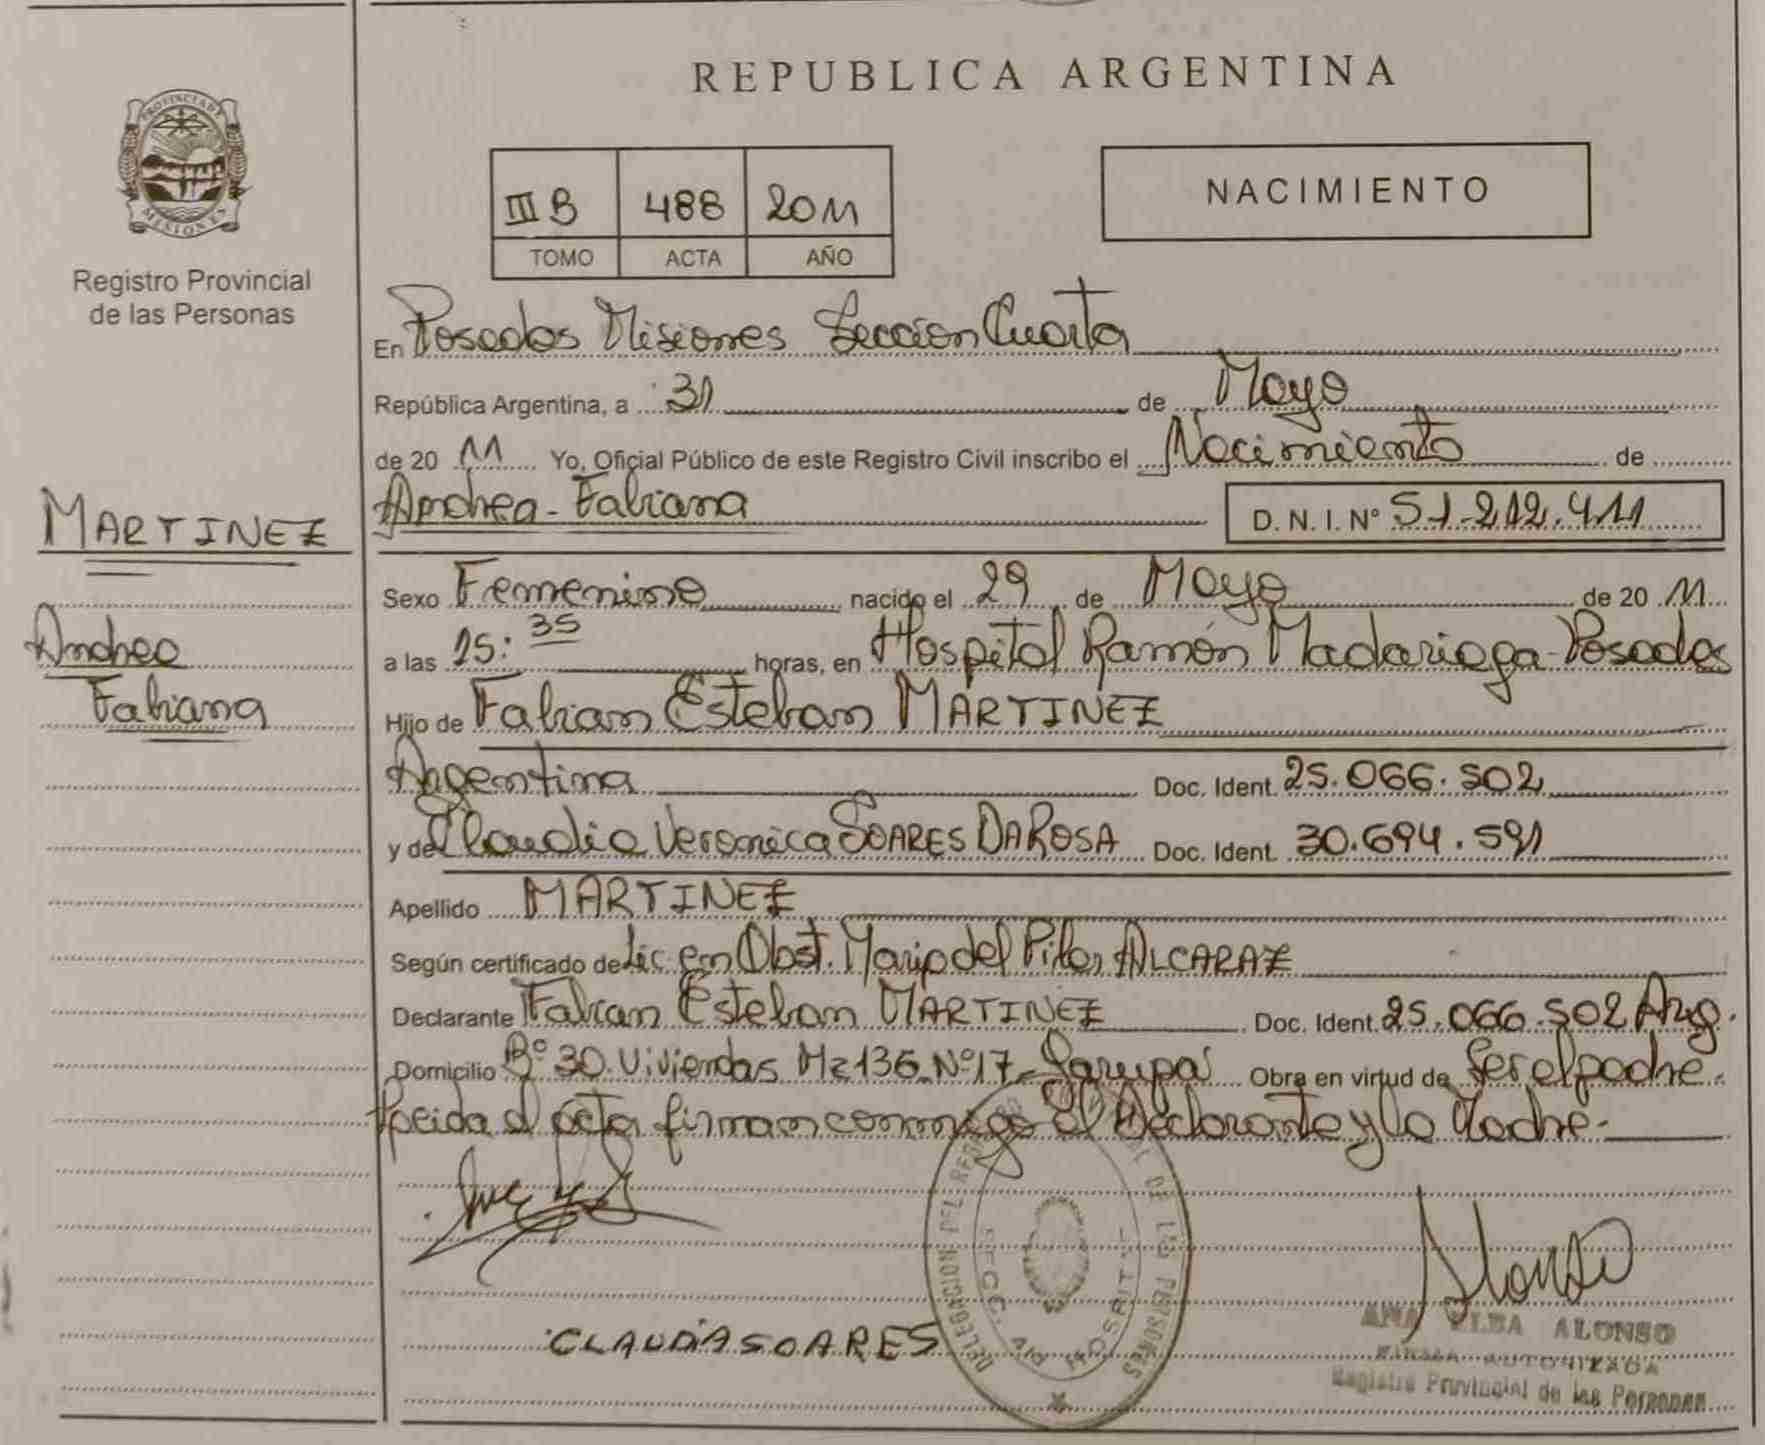 PROVINCIA DE
MISIONES
Registro Provincial
de las Personas
MARTINEZ
Andrea
Fabiana
REPUBLICA ARGENTINA
III B 488 2011
TOMO ACTA AÑO
NACIMIENTO
En Posadas Misiones Sección Cuarta
República Argentina, a 31 de Mayo
de 20 11 Yo, Oficial Público de este Registro Civil inscribo el Nacimiento de
Andrea - Fabiana D. N. I. Nº 51.212.411
Sexo Femenino nacido el 29 de Mayo de 20 11
a las 15:35 horas, en Hospital Ramón Madariaga - Posadas
Hijo de Fabian Esteban MARTINEZ
Argentina Doc. Ident. 25.066.502
y de Claudia Veronica SOARES DA ROSA Doc. Ident. 30.694.591
Apellido MARTINEZ
Según certificado de Lic en Obst. Maria del Pilar ALCARAZ
Declarante Fabian Esteban MARTINEZ Doc. Ident. 25.066.502 Arg.
Domicilio Bº 30 Viviendas Mz 136 Nº 17 - Garupá Obra en virtud de Ser el padre.
Leida el acta firman conmigo el Declarante y la Madre.-
CLAUDIA SOARES
Alonso
ANA ELBA ALONSO
FIRMA AUTORIZADA
Registro Provincial de las Personas
DELEGACION DEL DE LAS PERSONAS